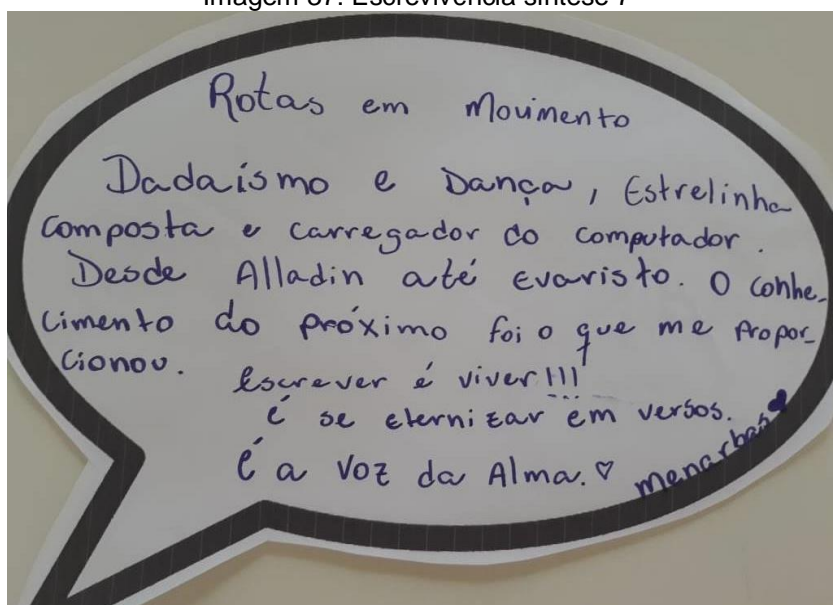 Imagem 37: Escrevivência síntese 7
Rotas em Movimento
Dadaísmo e Dança, Estrelinha
composta e carregador do computador.
Desde Alladin até Evaristo. O conhe-
cimento do próximo foi o que me propor-
cionou.
Escrever é viver!!!
é se eternizar em versos.
É a voz da Alma. ♡
Menarbas ♥